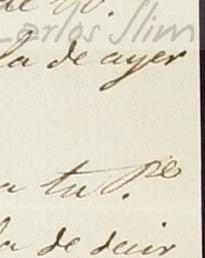 Carlos Slim
la de ayer
a tu P.res
la de decir